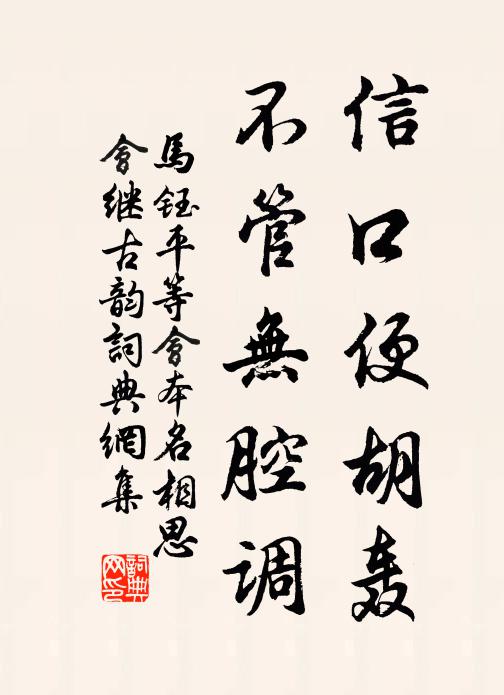 信口便胡轰
不管無腔调
馬鈺平等會本名相思
會继古韵詞典網集
詞典网印